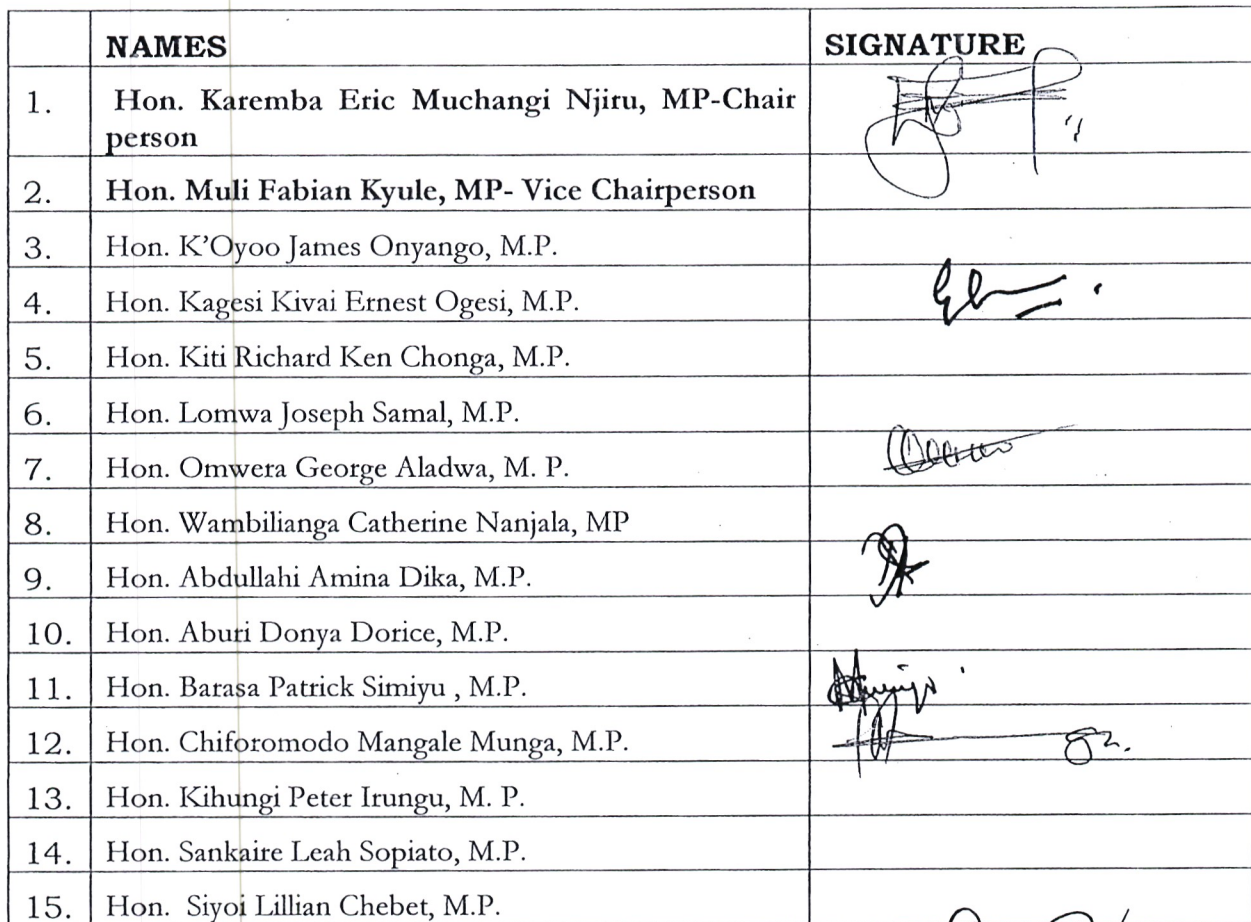 NAMES SIGNATURE
1. Hon. Karemba Eric Muchangi Njiru, MP-Chair
person
2. Hon. Muli Fabian Kyule, MP- Vice Chairperson
3. Hon. K’Oyoo James Onyango, M.P.
4. Hon. Kagesi Kivai Ernest Ogesi, M.P.
5. Hon. Kiti Richard Ken Chonga, M.P.
6. Hon. Lomwa Joseph Samal, M.P.
7. Hon. Omwera George Aladwa, M. P.
8. Hon. Wambilianga Catherine Nanjala, MP
9. Hon. Abdullahi Amina Dika, M.P.
10. Hon. Aburi Donya Dorice, M.P.
11. Hon. Barasa Patrick Simiyu , M.P.
12. Hon. Chiforomodo Mangale Munga, M.P.
13. Hon. Kihungi Peter Irungu, M. P.
14. Hon. Sankaire Leah Sopiato, M.P.
15. Hon. Siyoi Lillian Chebet, M.P.